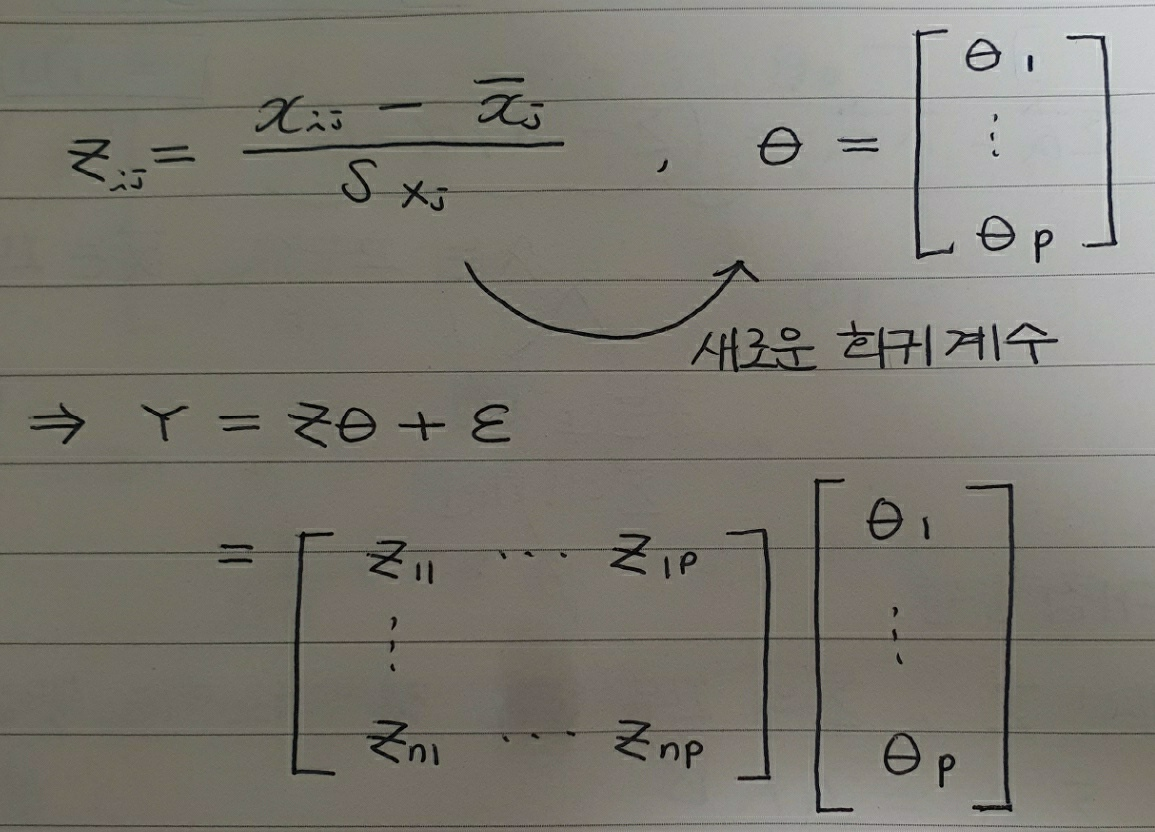 Z_{ij} = \frac{x_{ij} - \overline{x}_j}{S_{x_j}} , θ = \begin{bmatrix} θ_1 \\ ⋮ \\ θ_p \end{bmatrix}
새로운 회귀계수
⇒ Y = Zθ + ε
= \begin{bmatrix} Z_{11} & ⋯ & Z_{1p} \\ ⋮ \\ Z_{n1} & ⋯ & Z_{np} \end{bmatrix} \begin{bmatrix} θ_1 \\ ⋮ \\ θ_p \end{bmatrix}